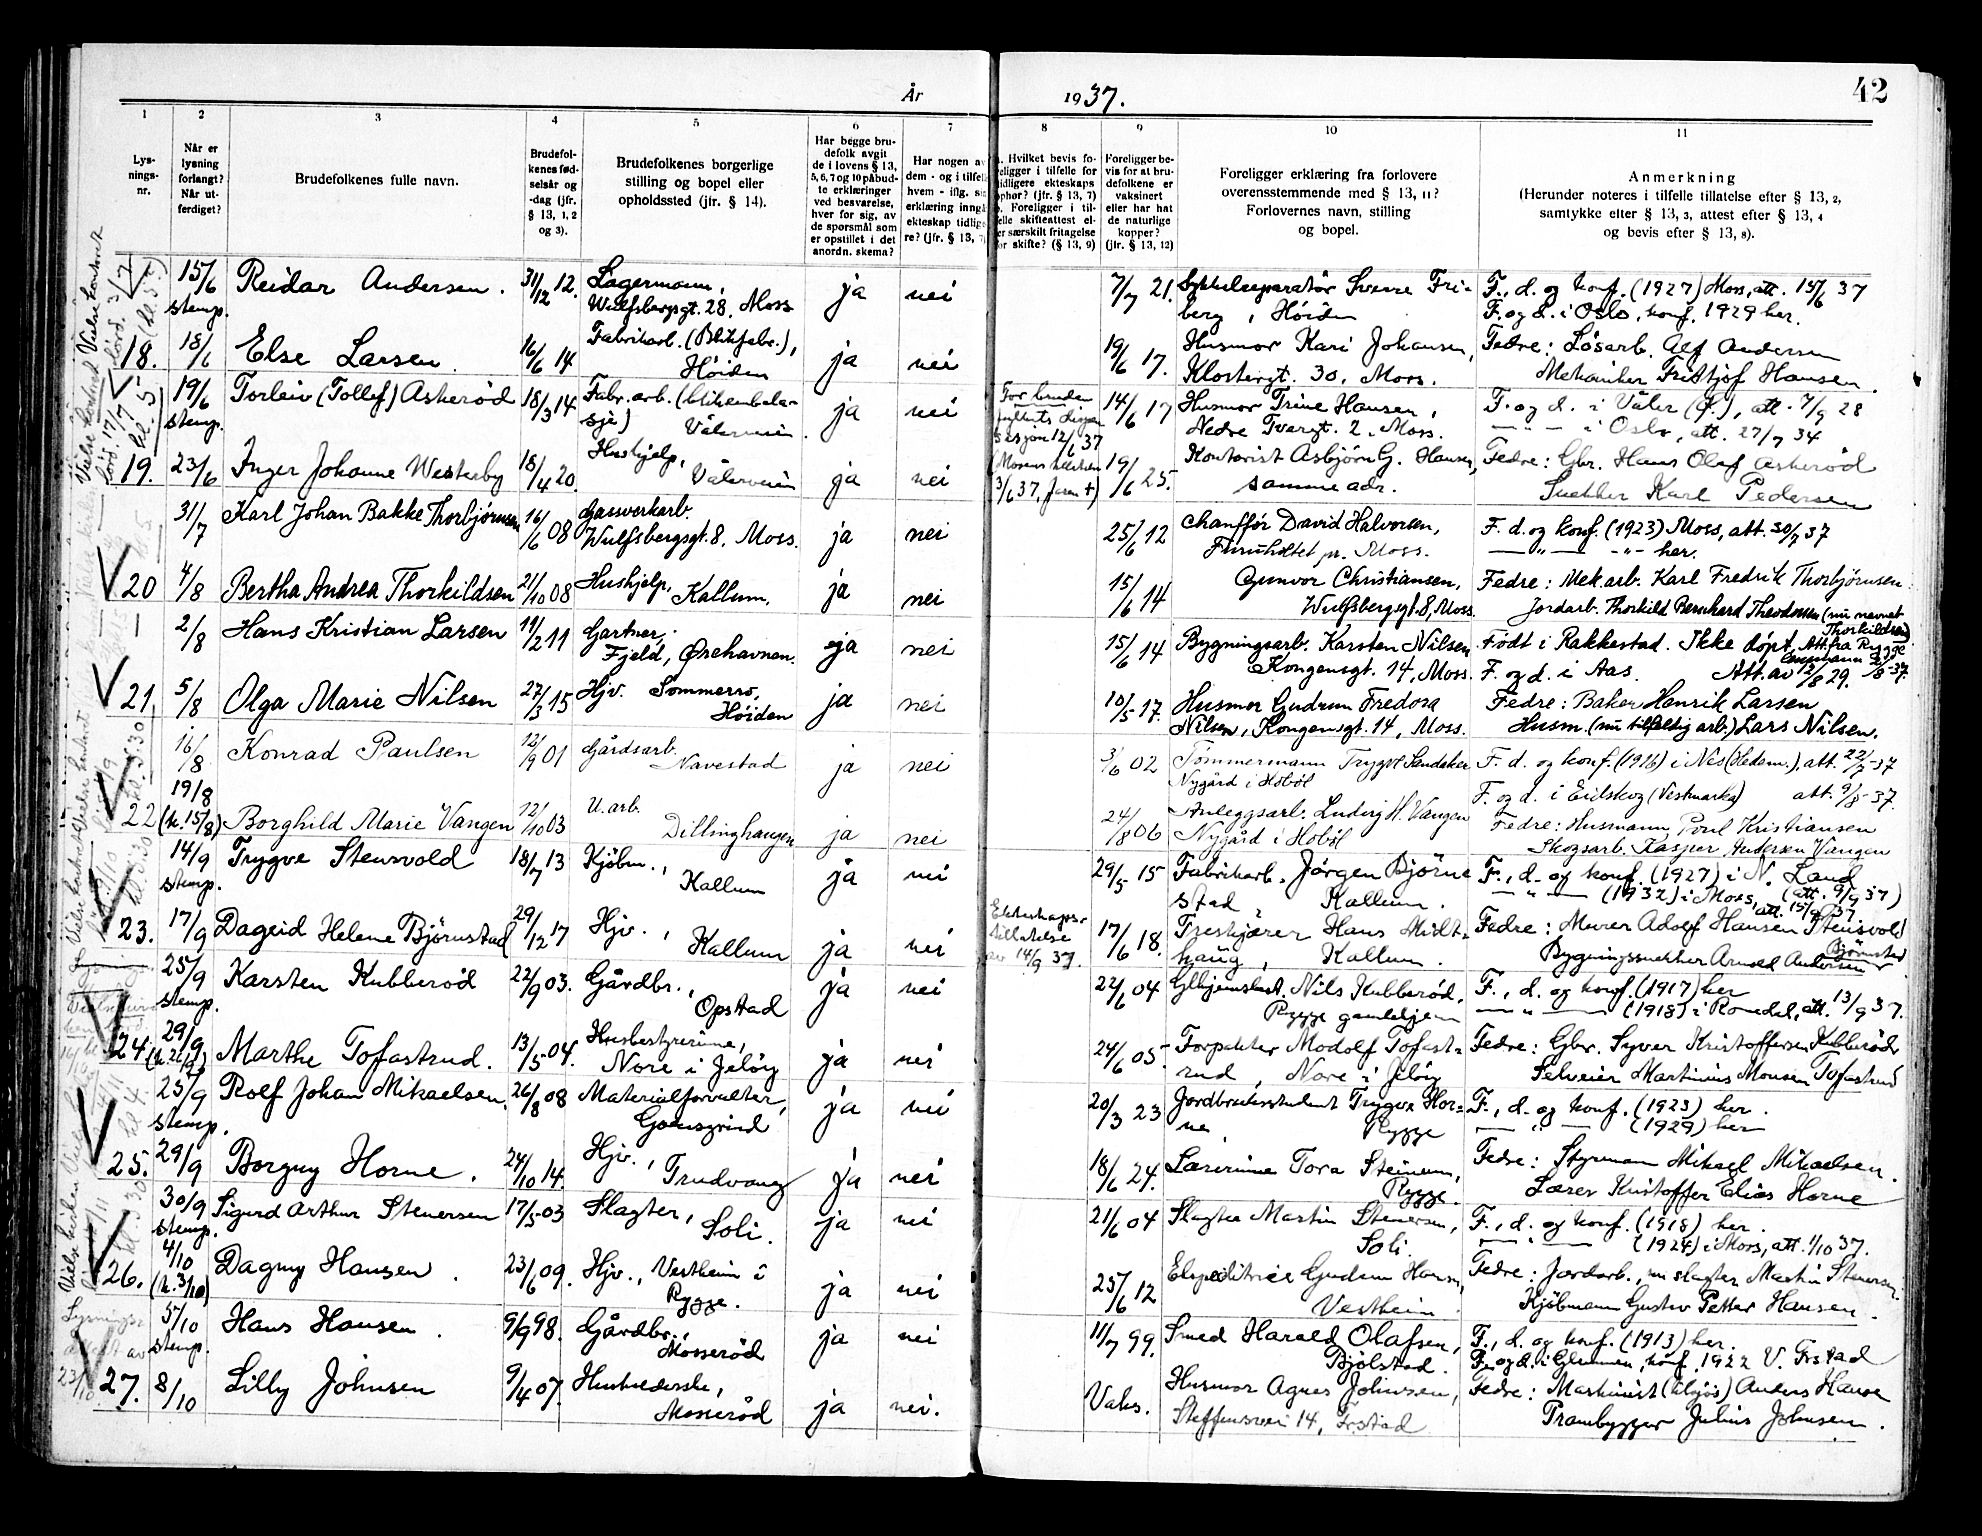 År
1937.
42
1
2
3
4
5
6
7
8
9
10
11
Lys-
nings-
nr.
Når er
lysning
forlangt?
Når ut-
ferdiget?
Brudefolkenes fulle navn.
Brudefol-
kenes fød-
selsår og
-dag (jfr.
§ 13, 1, 2
og 3).
Brudefolkenes borgerlige
stilling og bopel eller
opholdssted (jfr. § 14).
Har begge bru-
defolk avgit
de i lovens § 13,
5, 6, 7 og 10 påbud-
te erklæringer
ved besvarelse,
hver for sig, av
de spørsmål som
er opstillet i det
anordn. skema?
Har nogen av
dem - og i tilfelle
hvem - iflg.
erklæring inngå
ekteskap tidlige
re? (jfr. § 13, 7
Hvilket bevis fo-
religger i tilfelle for
tidligere ekteskaps
ophør? (jfr. § 13, 7)
Foreligger i til-
felle skifteattest el-
er særskilt fritagelse
for skifte? (§ 13, 9)
Foreligger be-
vis for at bru-
defolkene er
vaksinert
eller har hat
de naturlige
kopper?
(jfr. § 13, 12)
Foreligger erklæring fra forlovere
overensstemmende med § 13, 11?
Forlovernes navn, stilling
og bopel.
Anmerkning
(Herunder noteres i tilfelle tillatelse efter § 13, 2,
samtykke efter § 13, 3, attest efter § 13, 4
og bevis efter § 13, 8).
15/6 stemp. Reidar Andersen. 31/12 12. Lagermann, Wulfsbergsgt. 28, Moss ja nei 7/7 21. Sykkelreparatør Sverre Fri-
berg, Höiden
F., d. og konf. (1927) Moss, att. 15/6 37
F. og d. i Oslo, konf. 1929 her.
18. 18/6 Else Larsen 16/6 14 Fabrikarb. (Blikfabr.), Höiden ja nei 19/6 17. Husmor Kari Johansen,
Klostergt. 30, Moss.
Fedre: Lösarb. Alf Andersen
Mekaniker Fritjof Hansen.
19/6 stemp. Torleiv (Tollef) Askeröd 18/3 14 Fabr. arb. (blikembala-
sje) Vålerveien ja nei
For bruden
12/6 37
3/6 37,
14/6 17 Husmor Trine Hansen,
Nedre Tvergt. 2, Moss.
F. og d. i Våler (Ø.), att. 7/9 28
— " — i Oslo, att. 27/7 34
19. 23/6 Inger Johanne Westeby 18/4 20. Hushjelp, Vålerveien ja nei 19/6 25. Kontorist Asbjörn G. Hansen,
samme adr.
Fedre: Gbr. Hans Olaf Askeröd
Snekker Karl Pedersen
31/7 Karl Johan Bakke Thorbjørnsen 16/6 08 Gassverkarb. Wulfsbergsgt. 8, Moss. ja nei 25/6 12 Chauffør David Halvorsen,
Furuholtet pr. Moss.
F. d. og konf. (1923) Moss, att. 30/7 37
— " — - " - her.
20 4/8 Bertha Andrea Thorkildsen 21/10 08 Hushjelp, Kallum. ja nei 15/6 14 Gunvor Christiansen,
Wulfsbergsgt. 8, Moss
Fedre: Mek.arb. Karl Fredrik Thorbjørnsen
Jordarb. Thorkild Bernhard Theodorsen (nu nevnet
Thorkildsen)
2/8 Hans Kristian Larsen 11/2 11 Gartner, Fjeld, Ørehavnen. ja nei 15/6 14 Bygningsarb. Karsten Nilsen
Kongensgt. 14, Moss.
Født i Rakkestad. Ikke döpt. Att. fra Rygge
F. og d. i Aas. Att. av 12/8 29.
21, 5/8 Olga Marie Nilsen 27/3 15 Hjv. Sommerro, Höiden ja nei 10/5 17. Husmor Gudrun Fredora
Nilsen, Kongensgt. 14, Moss.
Fedre: Baker Henrik Larsen
Husm. (nu tilfeldig arb.) Lars Nilsen.
16/8 Konrad Paulsen 12/9 01 Gårdsarb. Navestad ja nei 3/6 02 Tömmermann Trygve Sandaker
Nygård i Hobøl
F. d. og konf. (1916) i Nes (Hedem.), att. 22/7-37
F. og d. i Eidskog (Vestmarka) att. 9/8-37.
19/8
22 (k. 15/8) Borghild Marie Vangen 12/10 03 U. arb. Dillinghaugen ja nei 24/8 06 Anleggsarb. Ludvig H. Vangen
Nygård i Hobøl
Fedre: Husmann Poul Kristiansen
Skogsarb. Kasper Andersen Vangen
14/9 stemp. Trygve Stensvold 18/7 13 Kjöbm., Kallum ja nei 29/5 15 Fabrikarb. Jörgen Björne
stad, Kallum.
F., d. og konf. (1927) i N. Land
(att. 9/9 37)
— " — (1932) i Moss, att. 15/9 37.
23. 17/9 Dagrid Helene Björnstad 29/12 17 Hjv., Kallum ja nei
Ekteskaps-
tillatelse
av 14/9 37.
17/6 18. Treskjærer Hans Midt-
haug, Kallum.
Fedre: Murer Adolf Hansen Stensvold
Bygningssnekker Arnold Andersen Björnstad
25/9 stemp. Karsten Kubberöd 22/9 03. Gårdbr., Opstad ja nei 22/6 04 Glhjemsbest. Nils Kubberöd,
Rygge gamlehjem
F., d. og konf. (1917) her
— " — (1918) i Romedal, att. 13/9 37.
24. 29/9 Marthe Tofastrud. 13/5 04. Husbestyrerinne, Nore i Jelöy ja nei 24/6 05 Forpakter Modolf Tofast-
rud, Nore i Jelöy
Fedre: Gbr. Syver Kristoffersen Kubberöd
Selveier Martinius Monsen Tofastrud
25/9 stemp. Rolf Johan Mikaelsen, 26/8 08 Materialforvalter, Gonsgrind ja nei 20/3 23 Jordbruksstudent Trygve Hor-
ne, Rygge
F., d. og konf. (1923) her.
— " — (1929) her
25. 29/9 Borgny Horne. 24/10 14. Hjv., Trudvang ja nei 18/6 24. Lærerinne Tora Steinum,
Rygge.
Fedre: Styrmann Mikael Mikaelsen.
Lærer Kristoffer Elias Horne
30/9 stemp. Sigurd Arthur Stenersen 17/5 03 Slagter, Soli. ja nei 21/6 04 Slagter Martin Stenersen,
Soli.
F., d. og konf. (1918) her.
— " — (1924) i Moss, att. 1/10 37.
26. 4/10 (k. 3/10) Dagny Hansen. 23/6 09. Hjv., Vestheim i Rygge. ja nei 25/6 12 Ekspeditrice Gudrun Hansen,
Vestheim.
Fedre: Jordarb., nu slagter Martin Stenersen,
Kjöbmann Gustav Petter Hansen.
5/10 stemp. Hans Hansen. 9/9 98. Gårdbr., Mosseröd ja nei 11/7 99. Smed Harald Olafsen,
Bjölstad.
F., d. og konf. (1913) her.
F. og d. i Glemmen, konf. 1922 V. Frstad
27. 8/10 Lilly Johnsen 9/4 07. Husholderske, Mosseröd ja nei. Vaks. Husmor Agnes Johnsen,
Steffensvei 14, Fr.stad
Fedre: Maskinist (tilsjös) Anders Hansen
Prambygger Julius Johnsen.